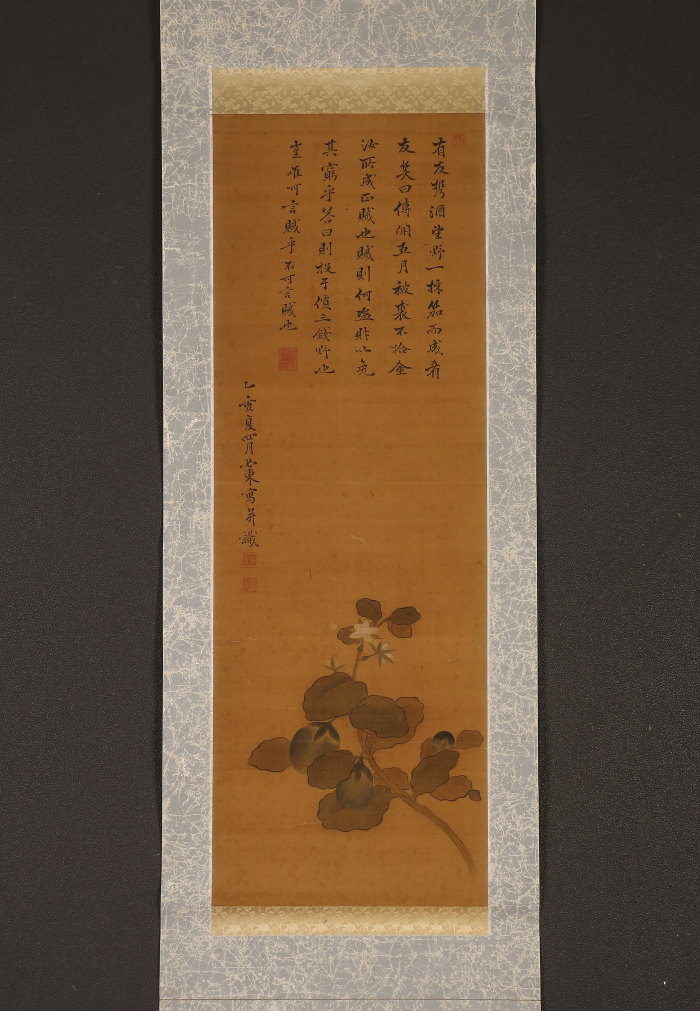 有友携酒坐野一採茄而成肴
友笑曰傳聞五月被裘不拾金
汝所成正賊也賊則何盗財以免
其窮乎答曰則投于償三錢野也
豈唯可言賊乎不可言賊也
乙亥夏四月 東寫并識